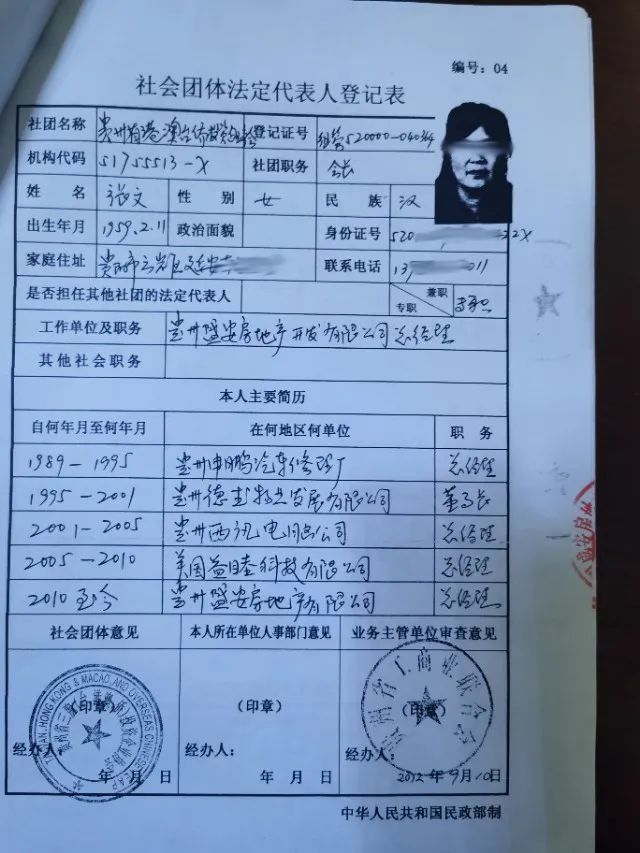 编号：04
社会团体法定代表人登记表
社团名称 贵州省港澳台侨 登记证号
机构代码 51755513-X 社团职务 会长
姓名 张文 性别 女 民族 汉
出生年月 1959.2.11 政治面貌 身份证号 520 22X
家庭住址 贵阳市云岩区延安 联系电话 13 011
是否担任其他社团的法定代表人 专职 兼职 专职
工作单位及职务 贵州盛安房地产开发有限公司总经理
其他社会职务
本人主要简历
自何年月至何年月 在何地区何单位 职务
1989-1995 贵州申鹏汽车修理厂 总经理
1995-2001 贵州德 发展有限公司 董事长
2001-2005 贵州西 公司 总经理
2005-2010 美国益 科技有限公司 总经理
2010至今 贵州盛安房地产有限公司 总经理
社会团体意见 本人所在单位人事部门意见 业务主管单位审查意见
TAIWAN HONG KONG & MACAO AND OVERSEAS CHINESE
贵州省工商业联合会
（印章） （印章） （印章）
经办人： 经办人： 经办人：
年 月 日 年 月 日 2012年9月10日
中华人民共和国民政部制